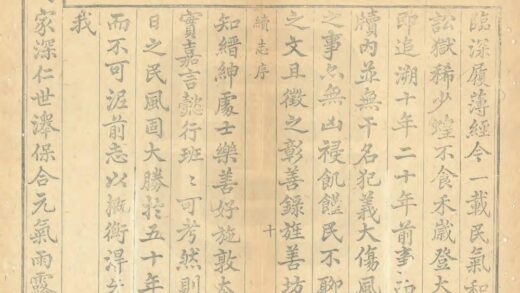 臨深履薄經今一載民氣和
訟獄稀少蝗不食禾歲登大
即追溯十年二十年前事
牘內並無干名犯義大傷風
之事亦無凶祲飢饉民不聊
之文且徵之彰善錄旌善坊
續志序 十
知縉紳處士樂善好施敦大
實嘉言懿行班〻可考然則
日之民風固大勝於五十年
而不可泥前志以概衡淂
我
家深仁世澤保合元氣雨露